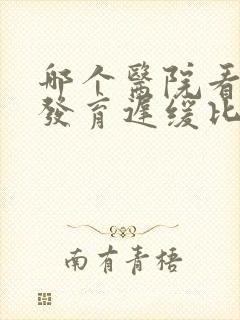 哪个醫院看
發育遲缓比
南有青梧